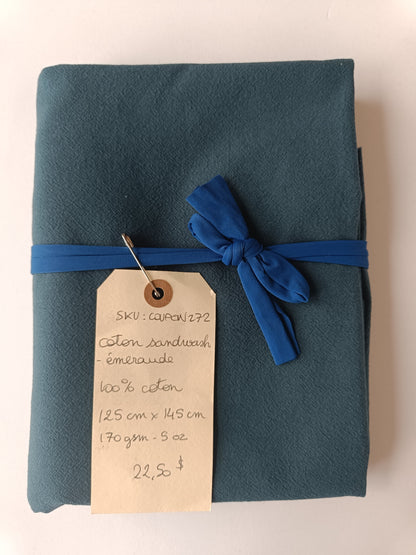 SKU : COUPON272
coton sandwash
- émeraude
100% coton
125 cm x 145 cm
170 gsm - 5 oz
22,50 $